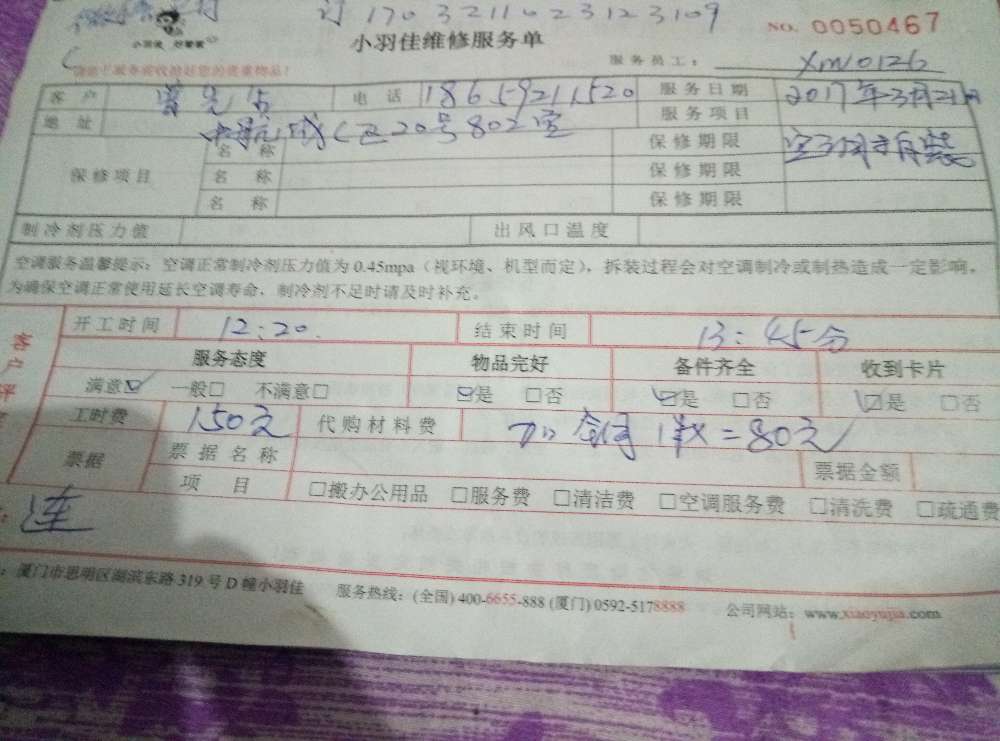 订 1703211023123109
小羽佳 好管家
NO. 0050467
小羽佳维修服务单
服务员工: XM0126
客户 曾先生 电话 18659211520 服务日期 2017年3月21日
地址 城C区20号802室 服务项目
保修项目 名称 保修期限
名称 保修期限
名称 保修期限
制冷剂压力值 出风口温度
空调服务温馨提示: 空调正常制冷剂压力值为 0.45mpa (视环境、机型而定), 拆装过程会对空调制冷或制热造成一定影响,
为确保空调正常使用延长空调寿命, 制冷剂不足时请及时补充。
客户评
开工时间 12:20. 结束时间 13:45分
服务态度 物品完好 备件齐全 收到卡片
满意☑ 一般□ 不满意□ ☑是 □否 ☑是 □否 ☑是 □否
工时费 150元 代购材料费 =80元
票据 票据名称 票据金额
项目 □搬办公用品 □服务费 □清洁费 □空调服务费 □清洗费 □疏通费
连
: 厦门市思明区湖滨东路 319 号 D 幢小羽佳 服务热线: (全国) 400-6655-888 (厦门) 0592-5178888 公司网站: www.xiaoyujia.com